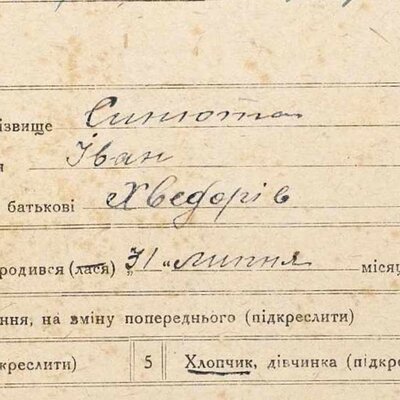 ізвище Синюта
я Іван
батькові Хведорів
родився (лася) „31" липня місяц
ння, на зміну попереднього (підкреслити)
креслити) 5 Хлопчик, дівчинка (підкр